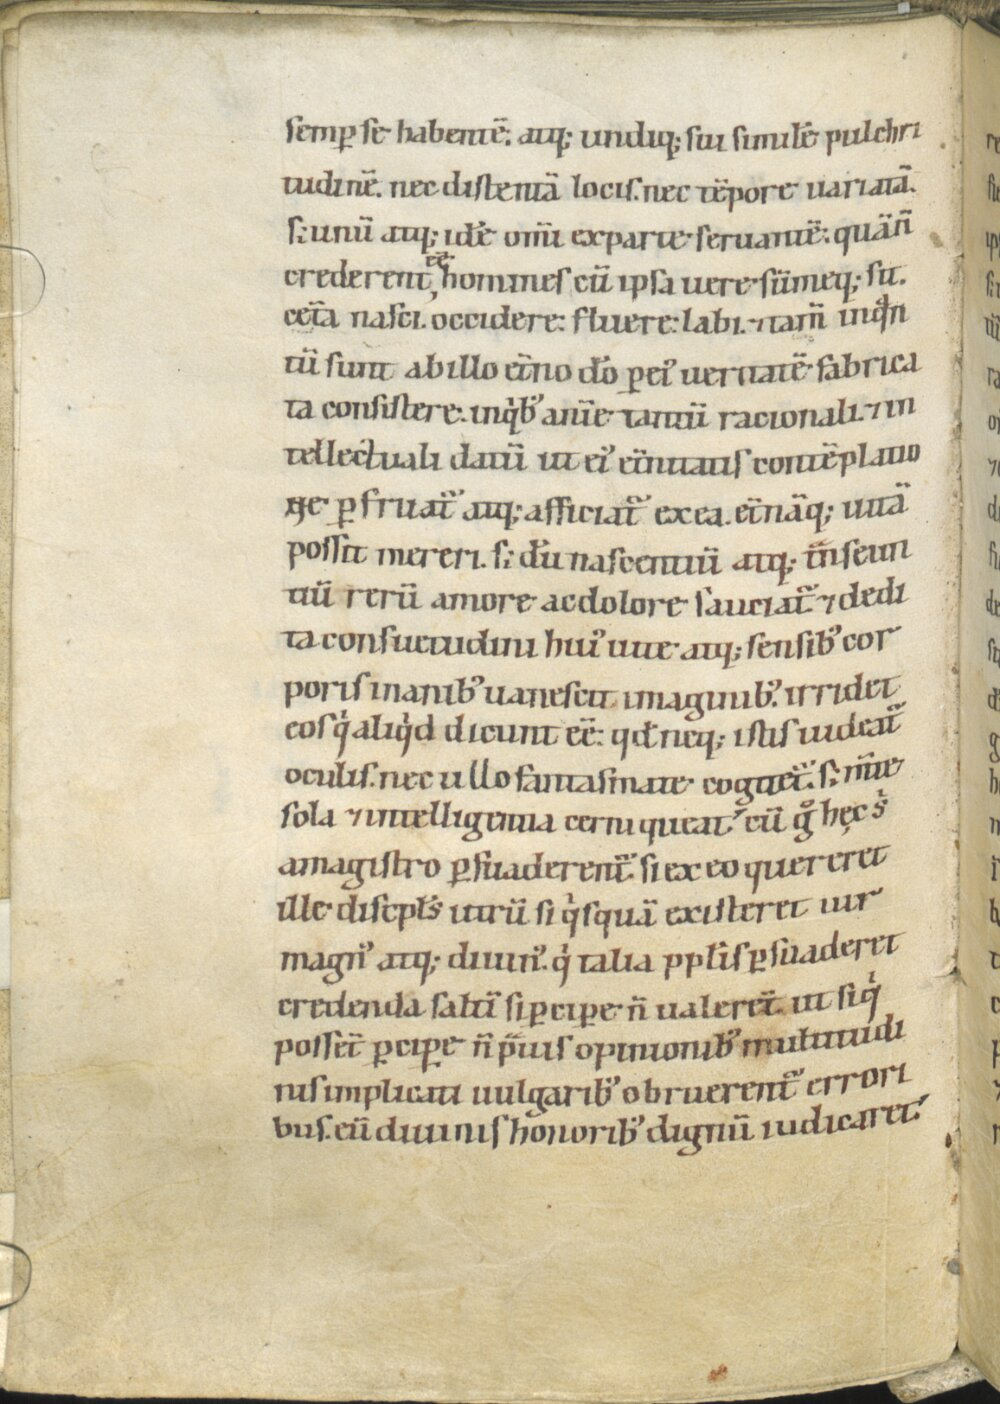 semp̱ se habentē. atq; undiq; sui similē pulchri
tudinē. nec distentā locis. nec tēpore uariatā.
s; unū atq; idē om̄i ex parte seruantē. quā n̄
crederent ēē homines cū ipsa uere sūmeq; sit.
cet̄a nasci. occidere. fluere. labi. ⁊ tam̄ inq̄n
tū sunt ab illo et̄no dō p̱ ei᷒ ueritatē fabrica
ta consistere. inq̇b᷒ anīe tantū racionali. ⁊ in
tellectuali datū ut ei᷒ et̄nitatis contēplatio
ne p̱fruat᷑ atq; afficiat᷑ ex ea. et̄nāq; uitā
possit mereri. s; dū nascentiū atq; t̄nseun
tiū rerū amore ac dolore sauciat᷑ ⁊ dedi
ta consuetudini hui᷒ uite atq; sensib᷒ cor
poris inanib᷒ uanescit imaginib᷒. irridet
eos q̇ aliq̇d dicunt ēē. qđ neq; istis uideat᷑
oculis. nec ullo fantasmate cogitet᷑. s; m̄te
sola ⁊ intelligentia cerni queat. cū g̊ hęc s̓
a magistro p̱suaderent᷑. si ex eo quereret
ille discipl̄s utrū si q̇squā existeret uir
magn᷒ atq; diuin᷒. q̇ talia ppl̄is p̱suaderet
credenda saltī si p̱cipe n̄ ualeret. ut si q̇
possēt p̱cipe n̄ p̄uis opinionib᷒ multitudi
nis implicati uulgarib᷒ obruerent᷑ errori
bus. eū diuinis honorib᷒ dignū iudicaret.